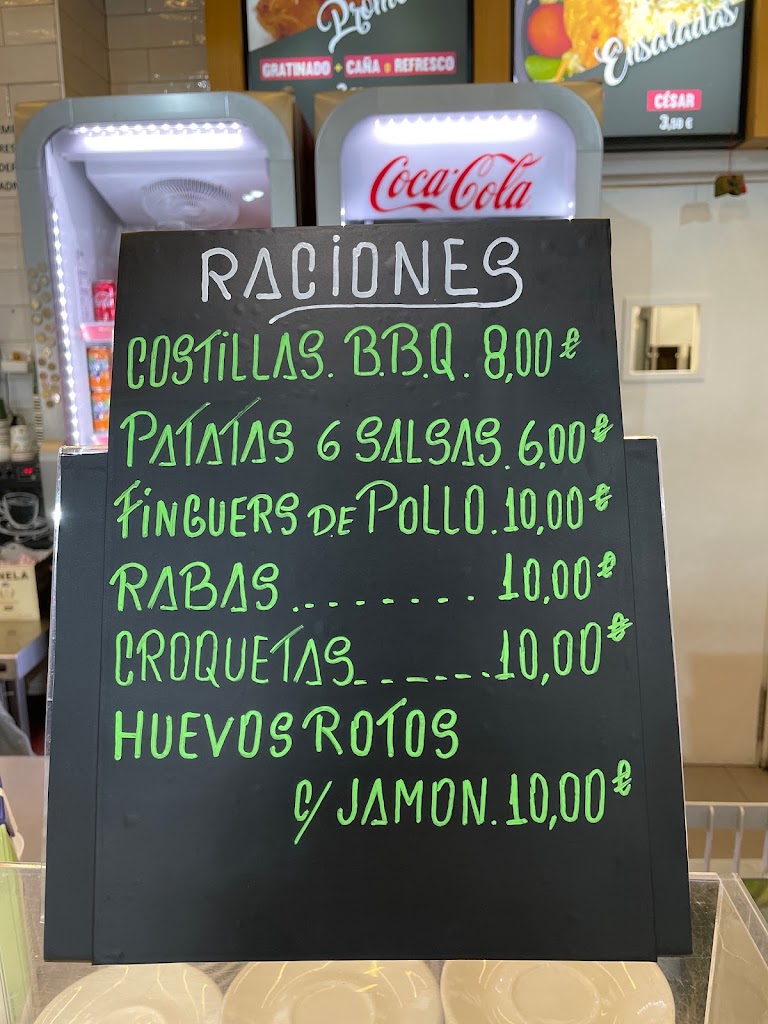 Promo
GRATINADO + CAÑA o REFRESCO
Ensaladas
CÉSAR
3,50 €
Coca-Cola
RACIONES
COSTILLAS. B.B.Q. 8,00€
PATATAS 6 SALSAS. 6,00€
FINGUERS DE POLLO. 10,00€
RABAS ........ 10,00€
CROQUETAS ...... 10,00€
HUEVOS ROTOS
C/ JAMON. 10,00€